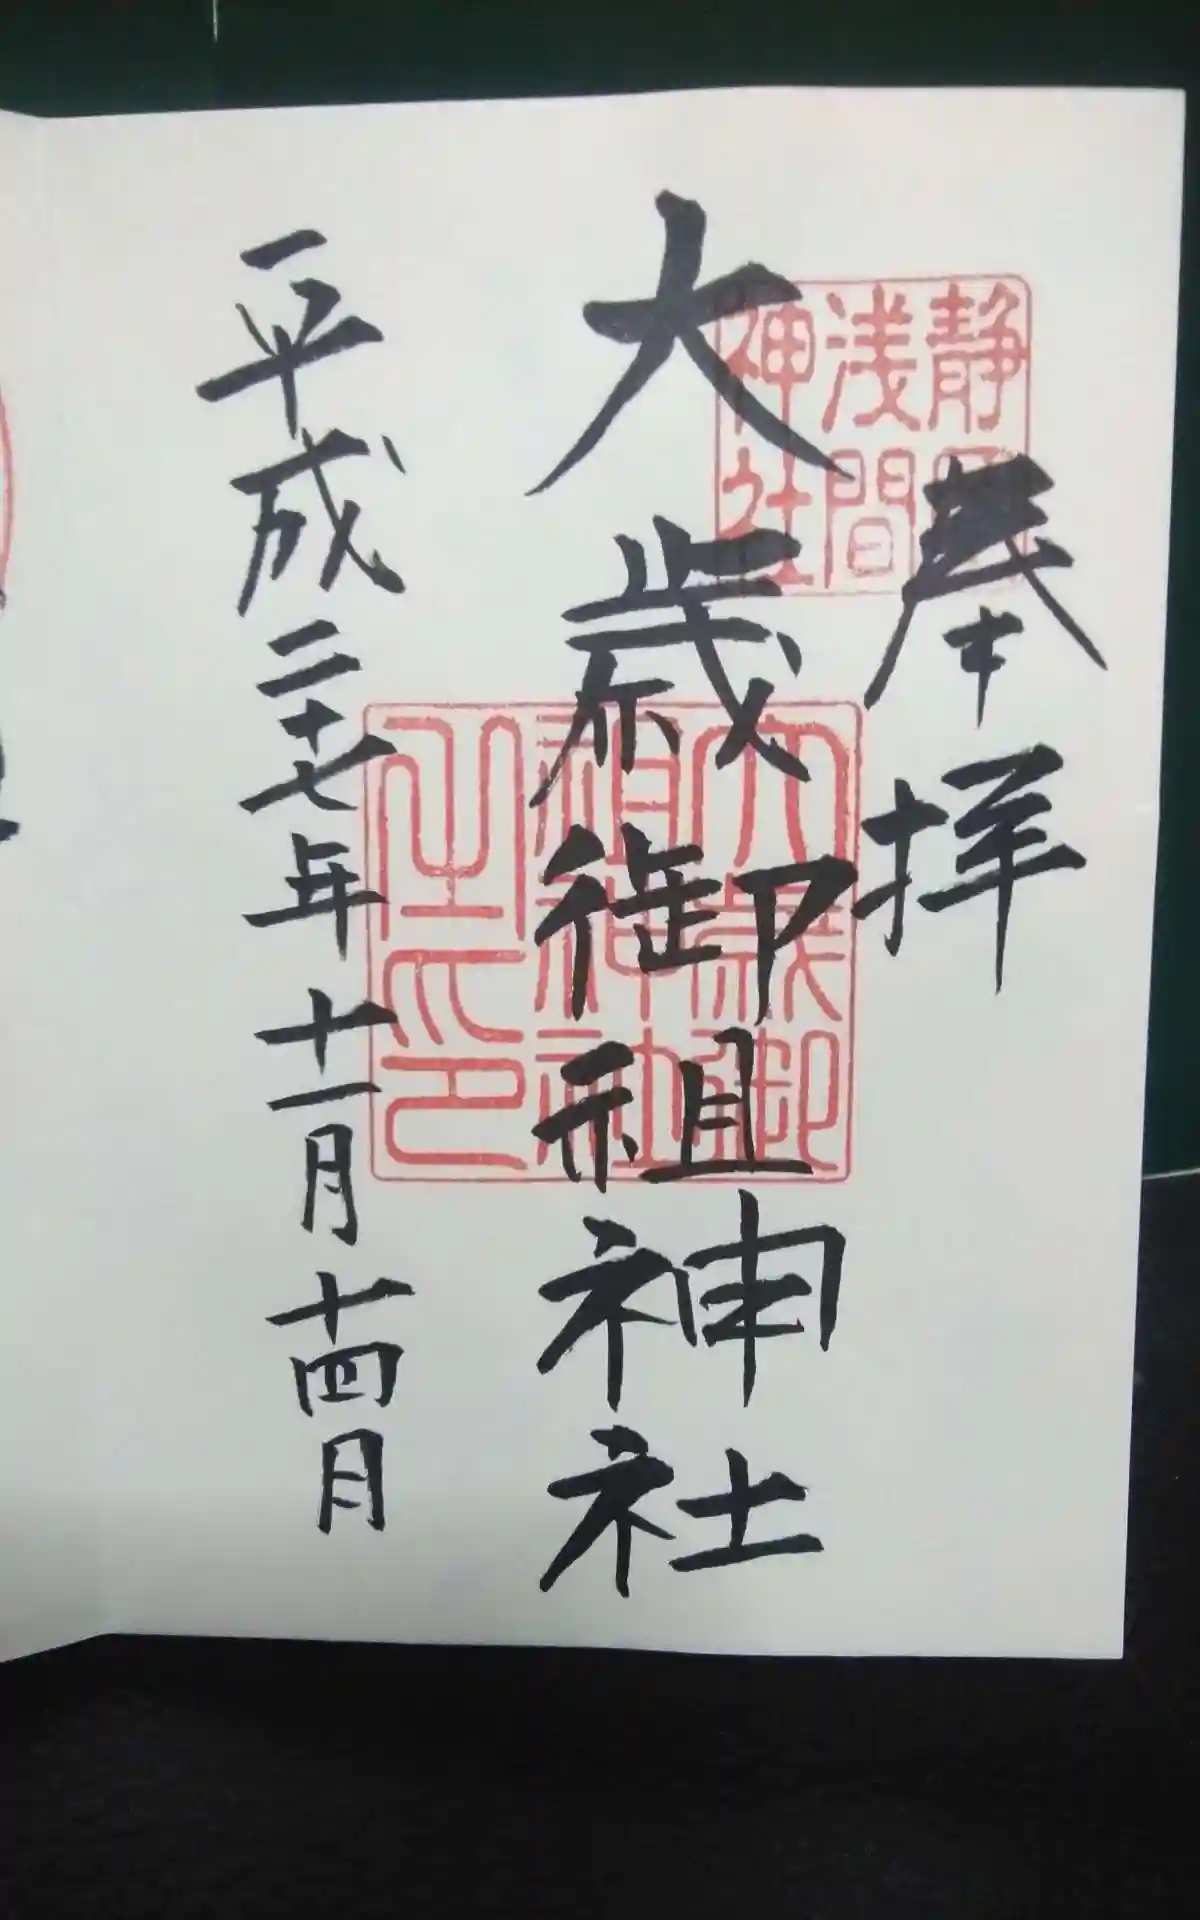 奉拝
静岡
浅間
神社
大歳御祖神社
大歳御
祖神社
之印
平成二十七年十一月十四日